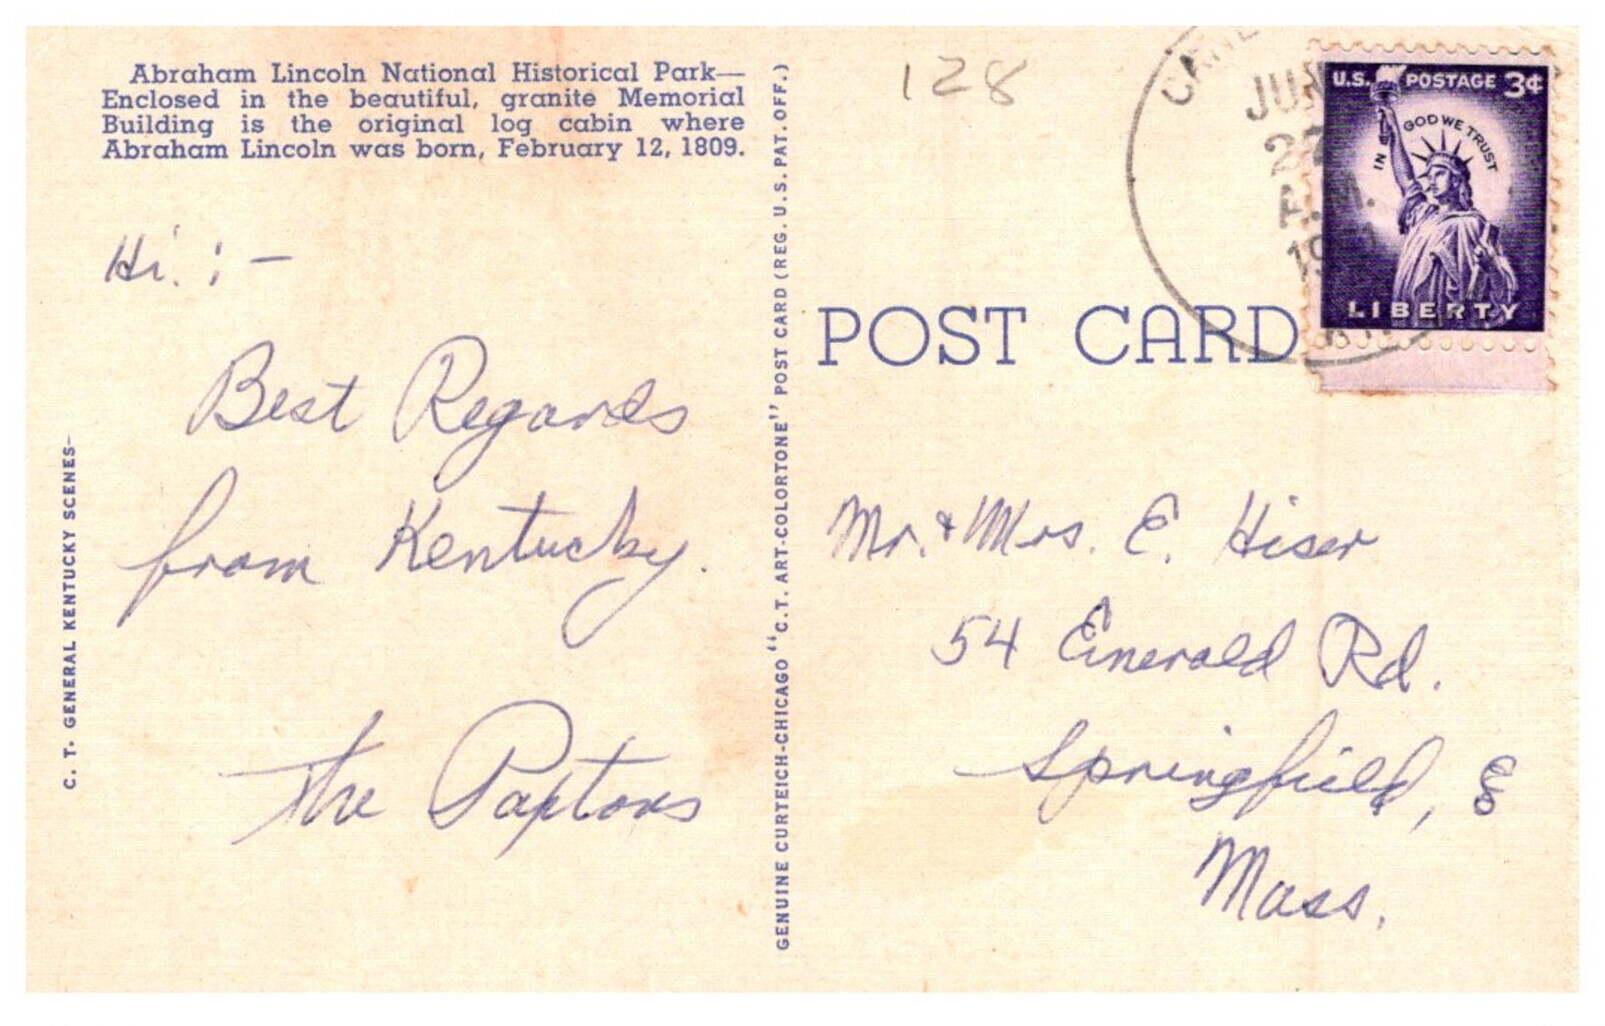 Abraham Lincoln National Historical Park—
Enclosed in the beautiful, granite Memorial
Building is the original log cabin where
Abraham Lincoln was born, February 12, 1809.
Hi. : —
Best Regards
from Kentucky.
The Paptons
C. T. GENERAL KENTUCKY SCENES—
GENUINE CURTEICH-CHICAGO "C.T. ART-COLORTONE" POST CARD (REG. U.S. PAT. OFF.)
128
JUN
27
A.M.
U.S. POSTAGE 3¢
IN GOD WE TRUST
LIBERTY
POST CARD
Mr. & Mrs. E. Hiser
54 Emerald Rd.
Springfield, 8
Mass.